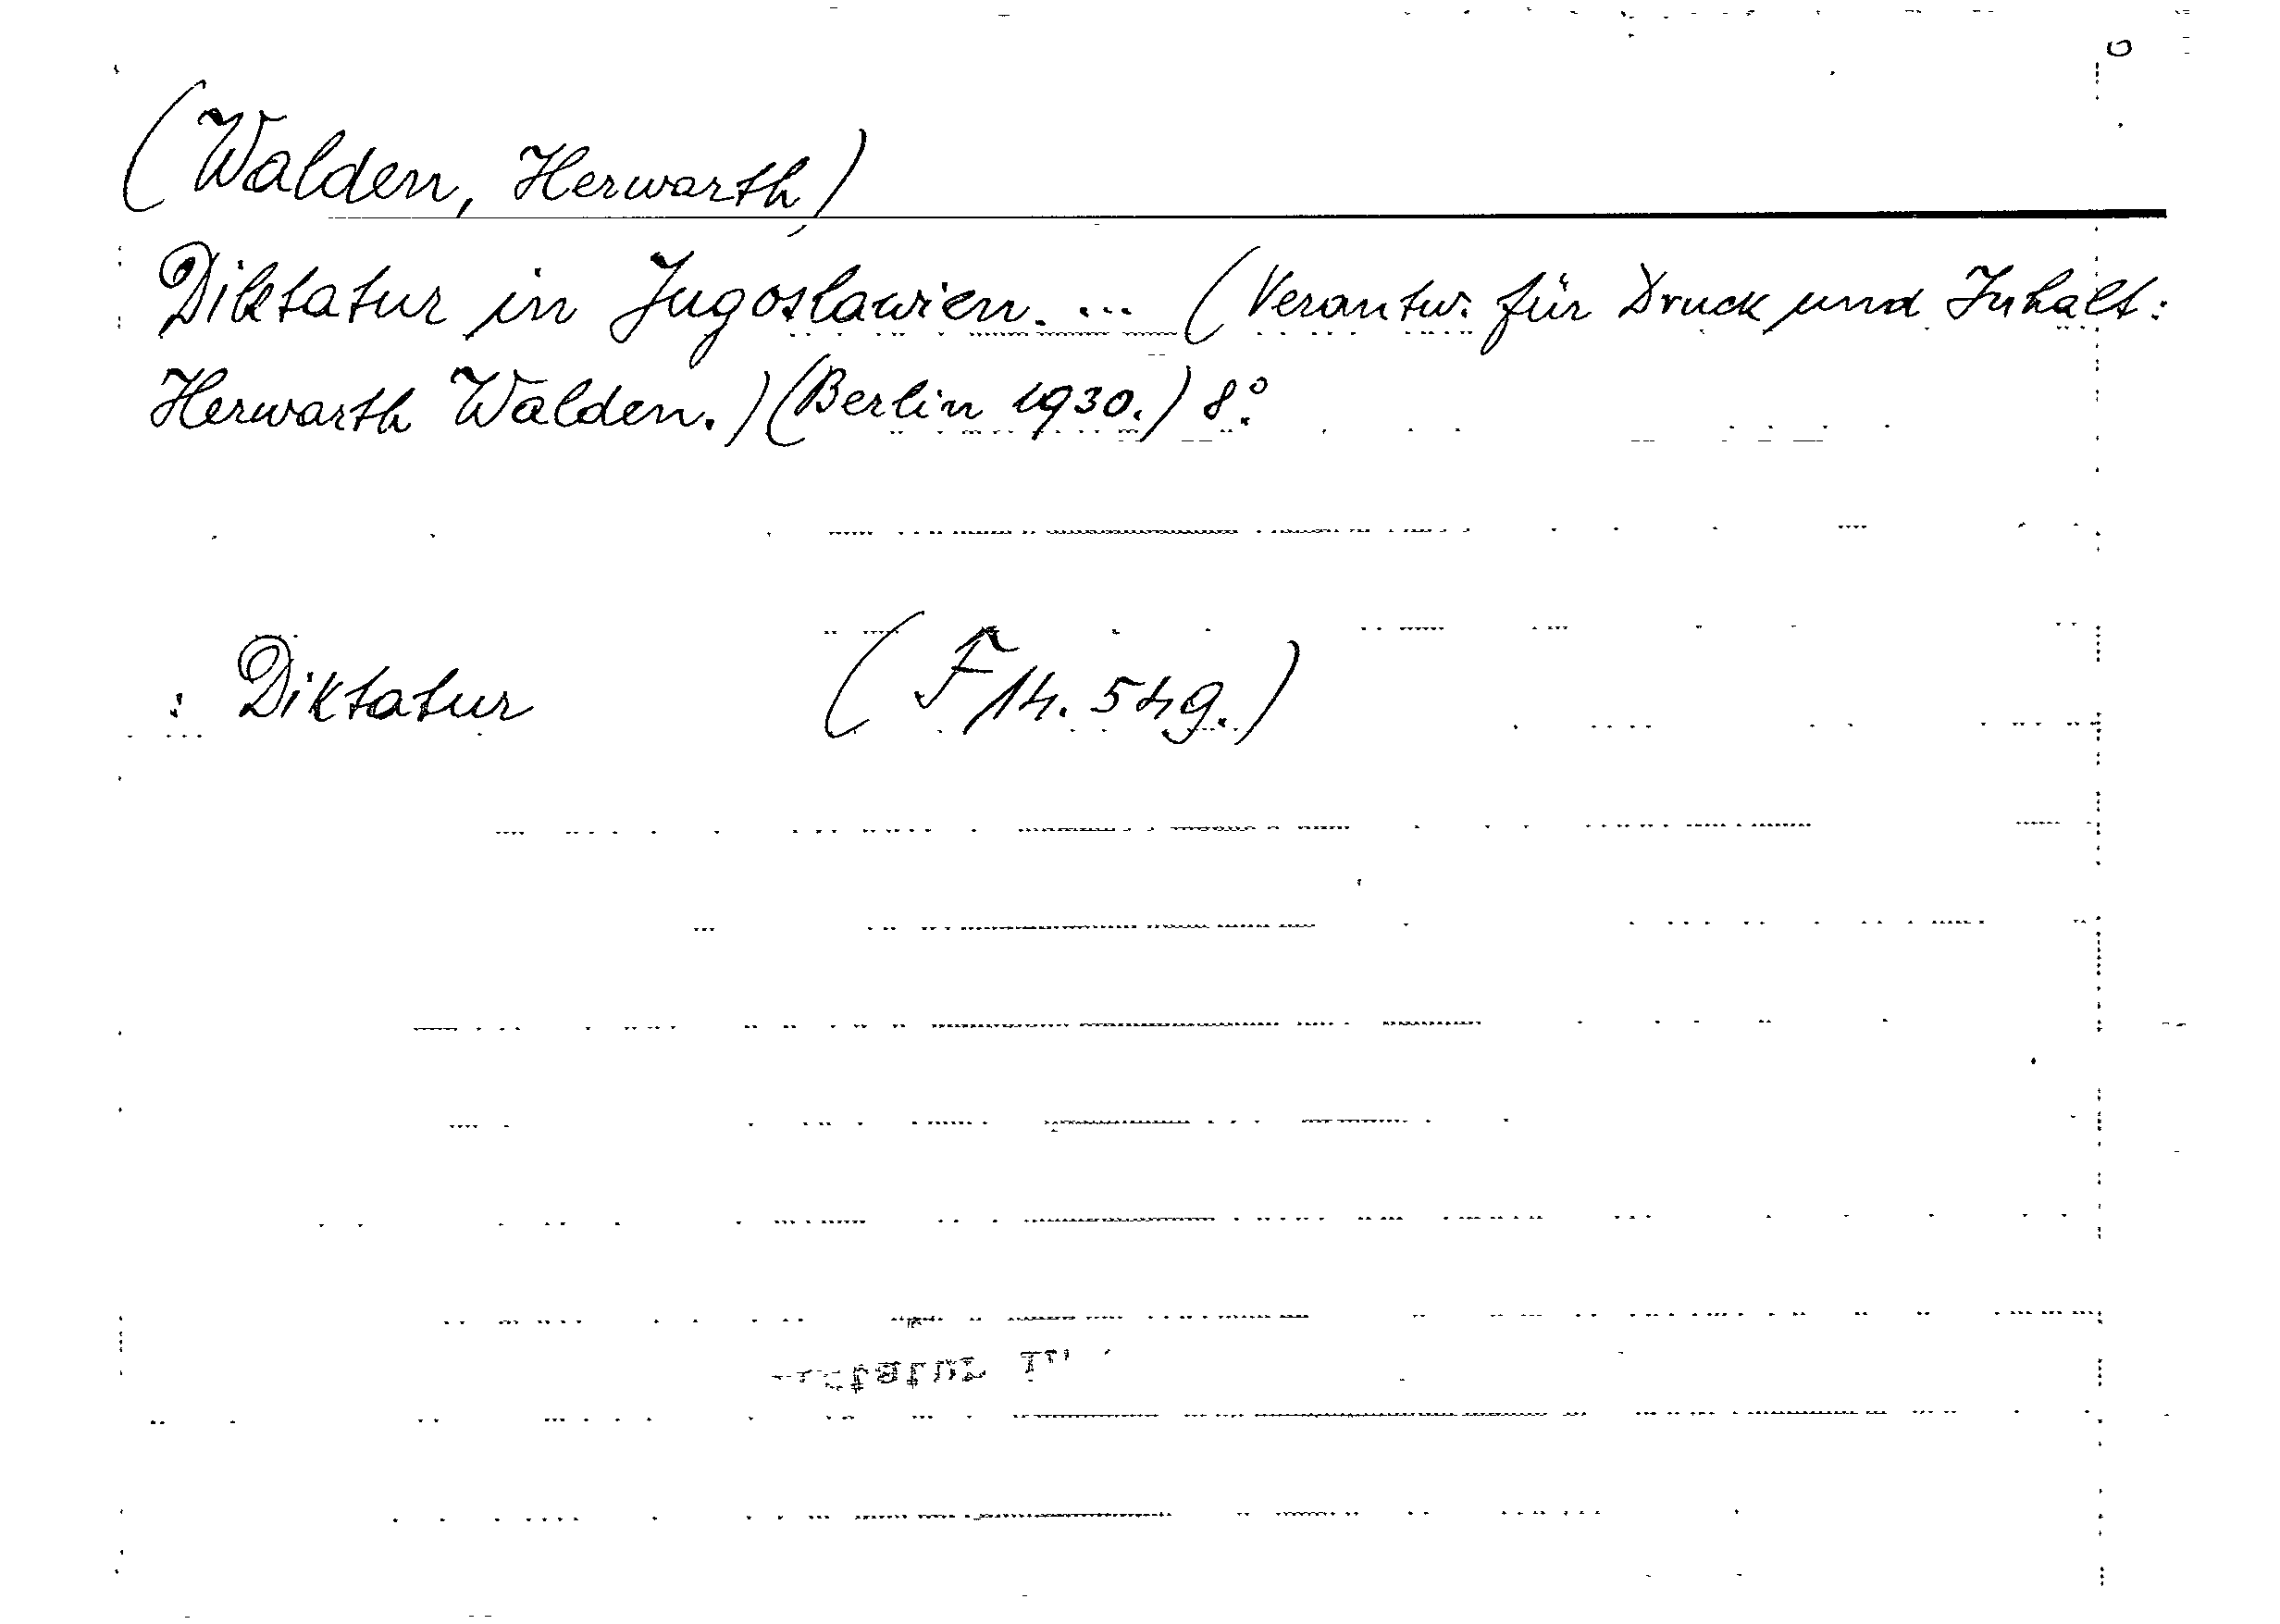 (Walden, Herwarth)
Diktatur in Jugoslawien. ... (Verantw. für Druck und Inhalt:
Herwarth Walden.) (Berlin 1930.) 8°.
: Diktatur (F 14. 549.)